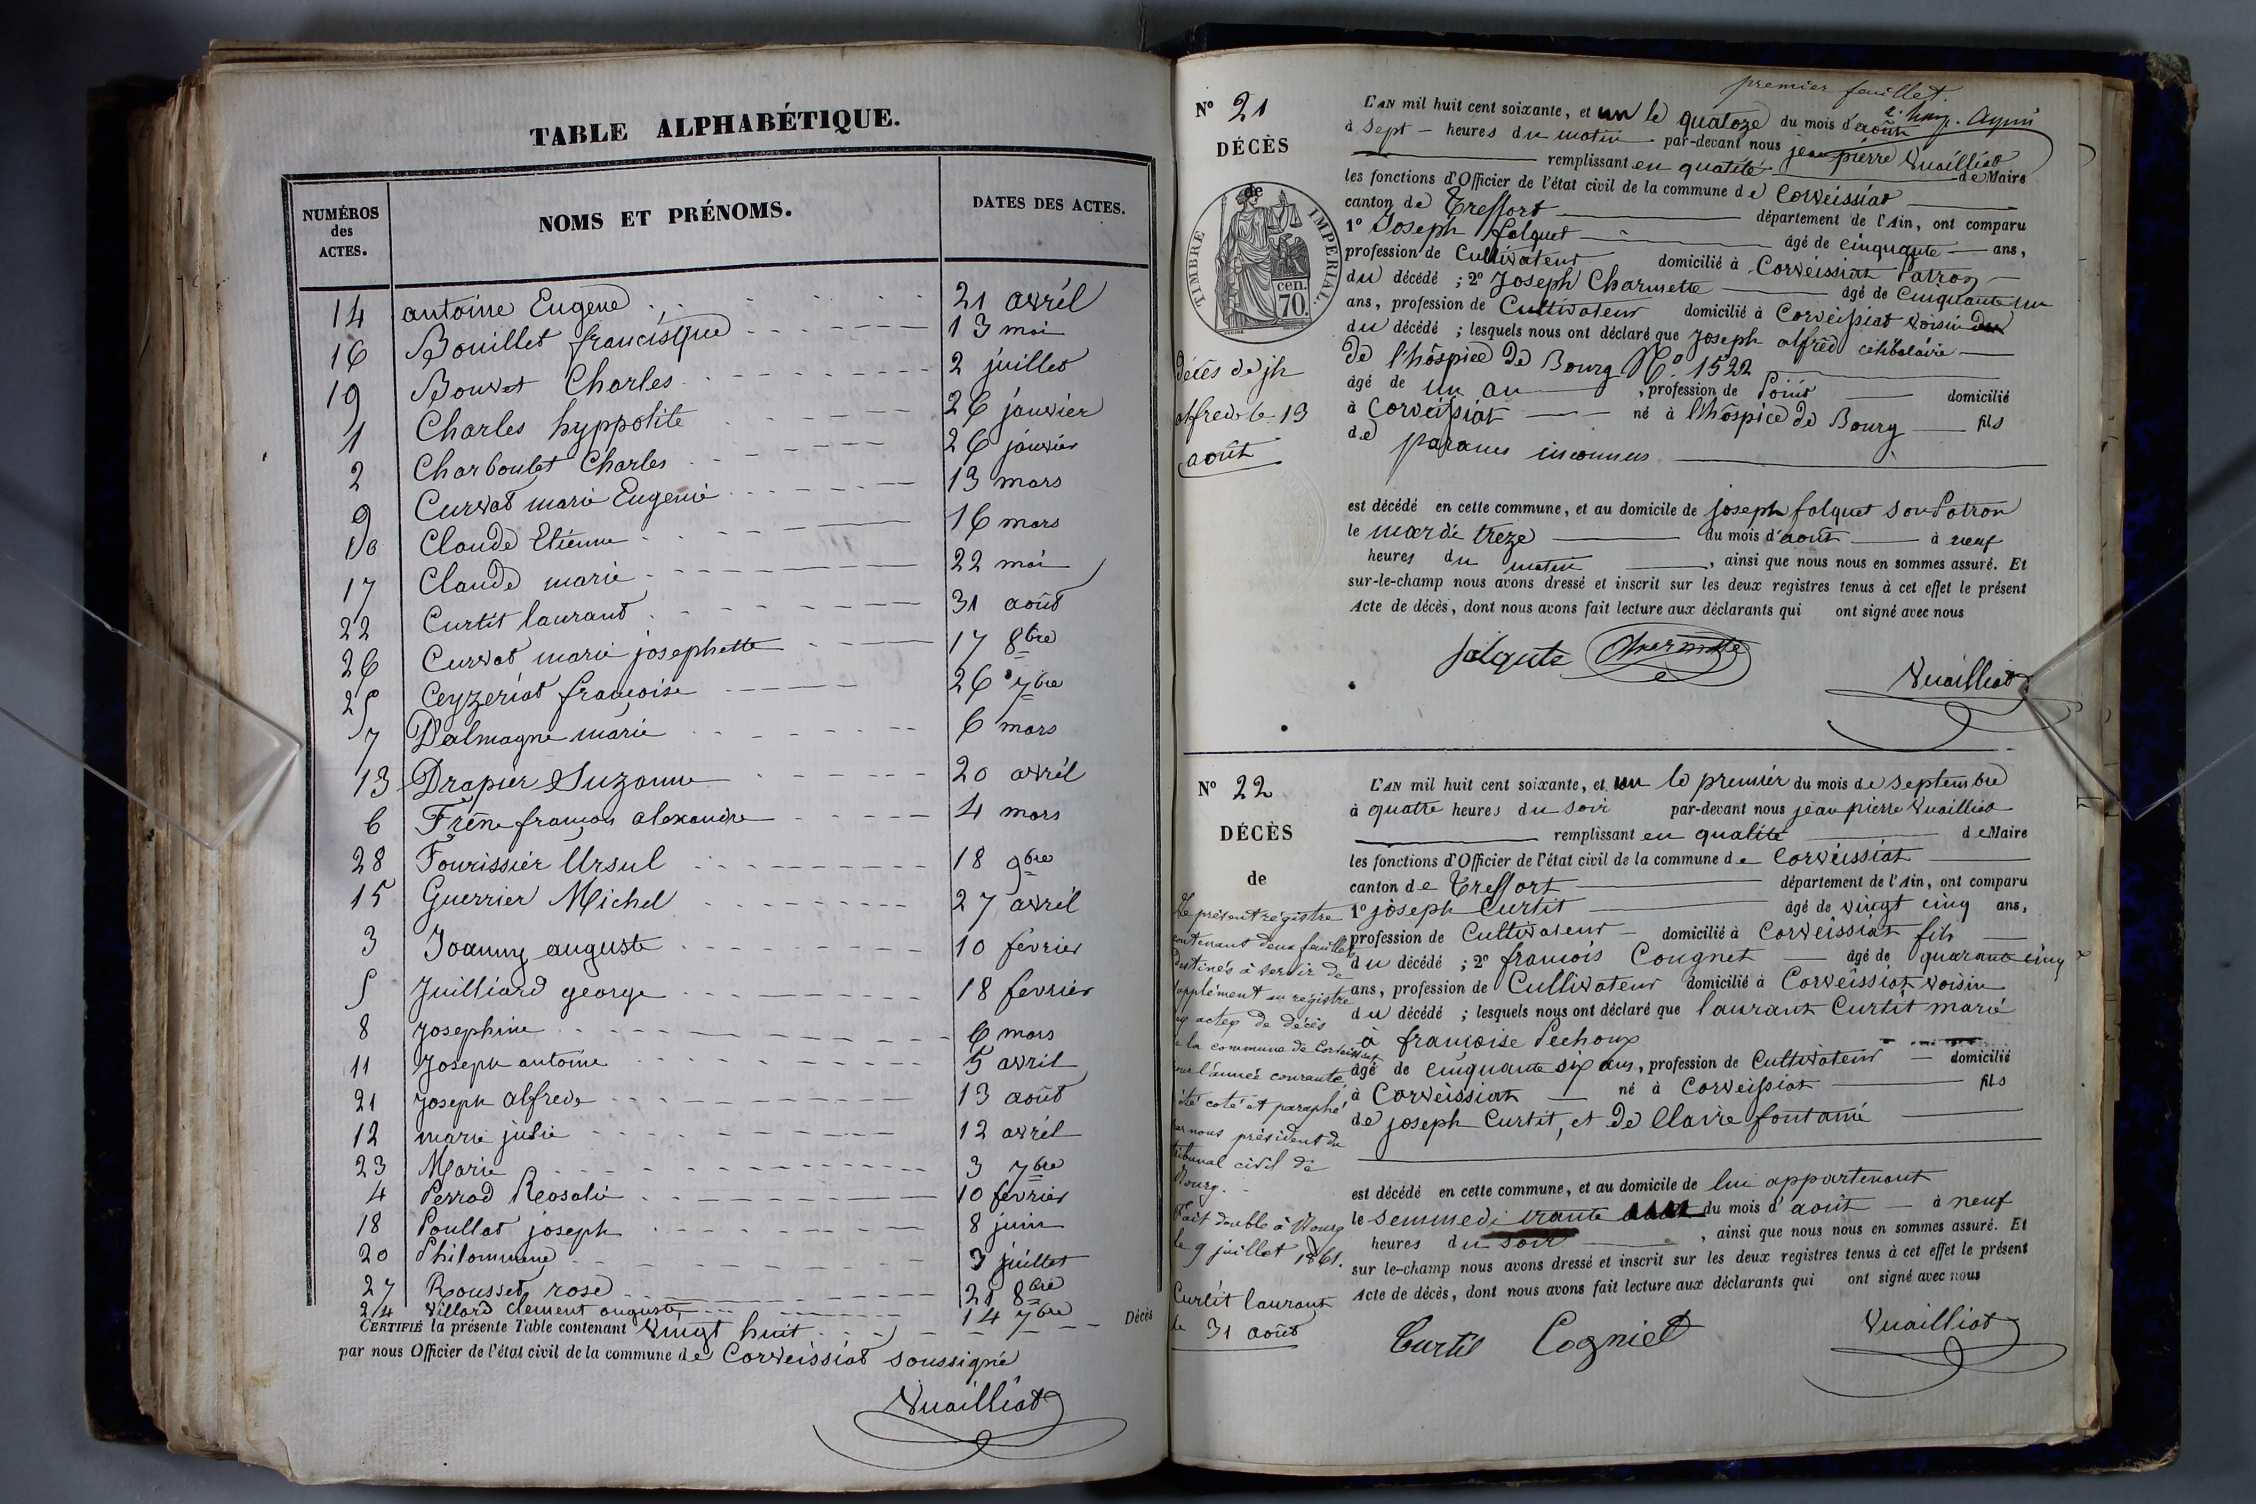 TABLE ALPHABÉTIQUE.
NUMÉROS des ACTES. NOMS ET PRÉNOMS. DATES DES ACTES.
14 antoine Eugene 21 avrél
16 Bouillet francisque 13 mai
19 Bouvet Charles 2 juillet
1 Charles hyppolite 26 janvier
2 Charboulet Charles 26 janvier
9 Curvat marie Eugenie 13 mars
10 Claude Etienne 16 mars
17 Claude marie 22 mai
22 Curtit laurant 31 août
26 Curvat marie josephette 17 8bre
25 Ceyzeriat françoise 26 7bre
7 Dalmagne marie 6 mars
13 Drapier Suzanne 20 avrél
6 Frêne françois alexandre 4 mars
28 Fourissier Ursul 18 9bre
15 Guerrier Michel 27 avrél
3 Joanny auguste 10 février
5 Juilliard george 18 fevrier
8 Josephine 6 mars
11 Joseph antoine 5 avril
21 Joseph alfred 13 août
12 marie julie 12 avrél
23 Marie 3 7bre
4 Perrod Reosalie 10 fevrier
18 Poullat joseph 8 juin
20 Philomene 3 juillet
27 Rousset rose 21 8bre
24 Villard clement auguste 14 7bre
CERTIFIÉ la présente Table contenant Vingt huit Décès
par nous Officier de l'état civil de la commune de Corveissiat soussigné
Vuailliat
premier feuillet.
N° 21
DÉCÈS
de
TIMBRE IMPERIAL.
cen. 70.
Décès de jh
alfred le 13
août
L'AN mil huit cent soixante, et un le quatoze du mois d'août
à Sept heures du matin par-devant nous jean pierre Vuailliat
remplissant en qualité de Maire
les fonctions d'Officier de l'état civil de la commune de Corveissiat
canton de Treffort département de l'Ain, ont comparu
1° Joseph folquet âgé de cinquante ans,
profession de Cultivateur domicilié à Corveissiat Patron
du décédé ; 2° Joseph Charmette âgé de Cinquante un
ans, profession de Cultivateur domicilié à Corveissiat voisin du
du décédé ; lesquels nous ont déclaré que Joseph alfred célibataire
de l'hôspice de Bourg N° 1522
âgé de un an , profession de domicilié
à Corveissiat né à l'hôspice de Bourg fils
de parans inconnus
est décédé en cette commune, et au domicile de joseph folquet son Patron
le mardi treze du mois d'août à neuf
heures du matin , ainsi que nous nous en sommes assuré. Et
sur-le-champ nous avons dressé et inscrit sur les deux registres tenus à cet effet le présent
Acte de décès, dont nous avons fait lecture aux déclarants qui ont signé avec nous
folquet Charmette
Vuailliat
N° 22
DÉCÈS
de
Le présent régistre
contenant deux feuillets
destinés à servir de
supplément au registre
des actes de décès
de la commune de Corveissiat
pour l'année courante,
été coté et paraphé
par nous président du
tribunal civil de
Bourg.
Fait double à Bourg
le 9 juillet 1861.
Curtit laurant
le 31 août
L'AN mil huit cent soixante, et un le premiér du mois de septembre
à quatre heures du soir par-devant nous jean pierre Vuailliat
remplissant en qualité de Maire
les fonctions d'Officier de l'état civil de la commune de Corveissiat
canton de Treffort département de l'Ain, ont comparu
1° joseph Curtit âgé de vingt cinq ans,
profession de Cultivateur domicilié à Corveissiat fils
du décédé ; 2° francois Cougnet âgé de quarante cinq
ans, profession de Cultivateur domicilié à Corveissiat voisin
du décédé ; lesquels nous ont déclaré que laurant Curtit marié
à françoise Pechoux
âgé de cinquante six ans, profession de Cultivateur domicilié
à Corveissiat né à Corveissiat fils
de joseph Curtit, et de Claire fontanié
est décédé en cette commune, et au domicile de lui appartenant
le semmedi trante du mois d'août à neuf
heures du soir , ainsi que nous nous en sommes assuré. Et
sur le-champ nous avons dressé et inscrit sur les deux registres tenus à cet effet le présent
Acte de décès, dont nous avons fait lecture aux déclarants qui ont signé avec nous
Curtit Cogniet Vuailliat